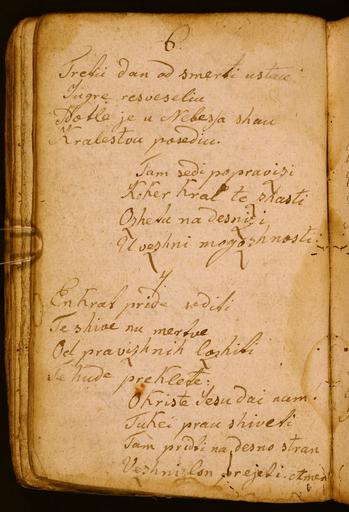 6.
Treti dan od smerti ustau
Jugre resveseliu
Potle je u Nebessa shau
Kralestvu posediu.
Tam sedi po pravizi
Koker Kral te zhasti
Ozheta na desnizi
U vezhni mogozhnosti:
7
Enkrat pride soditi
Te shive nu mertve
Od pravizhnih lozhiti
Te hude preklete:
O Kriste Jesu dai nam
Tukei prau shiveti
Tam priti na desno stran
Vezhni lon prejeti. Amen